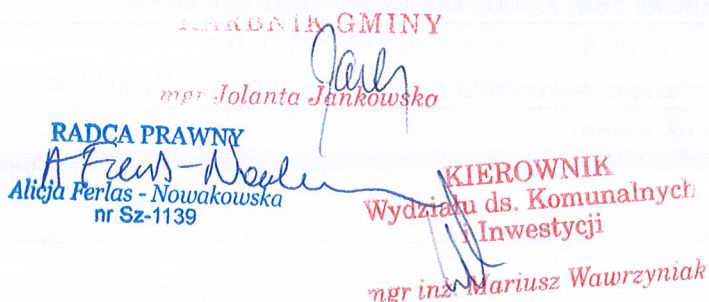 SKARBNIK GMINY
mgr Jolanta Jankowska
RADCA PRAWNY
Alicja Ferlas - Nowakowska
nr Sz-1139
KIEROWNIK
Wydziału ds. Komunalnych
i Inwestycji
mgr inż. Mariusz Wawrzyniak